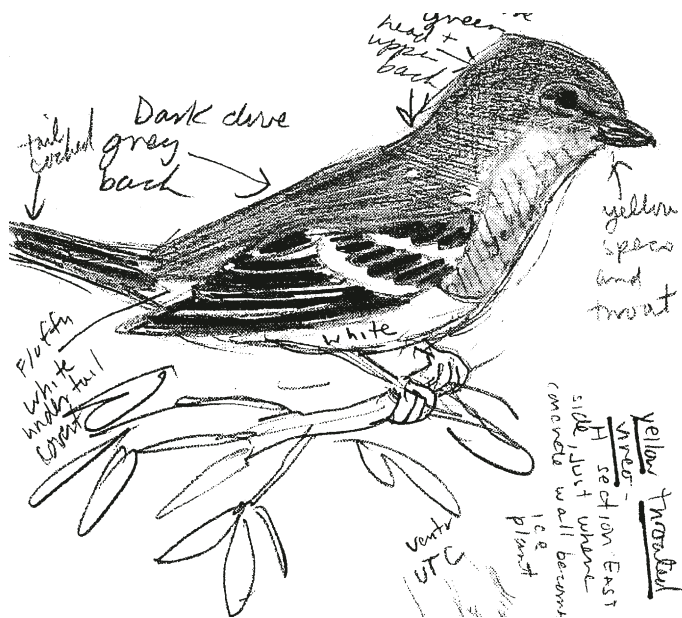 green
head +
upper
back
Dark dove
grey
back
tail
cocked
yellow
specs
and
throat
white
Fluffy
white
under tail
covert
yellow throated
vireo-
H section EAST
side, just where
concrete wall becomes
ice
plant
UTC